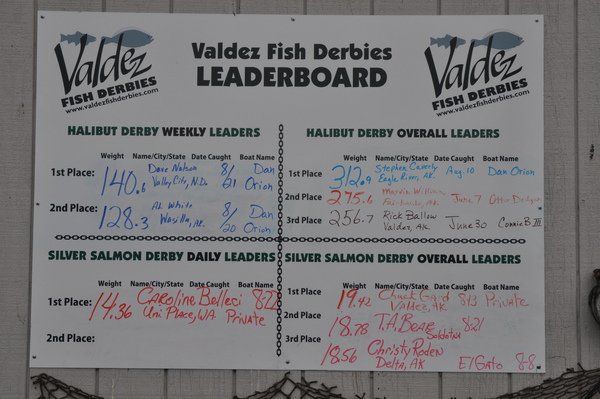 Valdez
FISH DERBIES
www.valdezfishderbies.com
Valdez Fish Derbies
LEADERBOARD
Valdez
FISH DERBIES
www.valdezfishderbies.com
HALIBUT DERBY WEEKLY LEADERS
Weight Name/City/State Date Caught Boat Name
1st Place: 140.6 Dave Nelson 8/21 Dan Orion
Valley City, N.D.
2nd Place: 128.3 AL White 8/20 Dan Orion
Wasilla, AK
HALIBUT DERBY OVERALL LEADERS
Weight Name/City/State Date Caught Boat Name
1st Place 312.9 Stephen Caverly Aug. 10 Dan Orion
Eagle River, AK
2nd Place 275.6 Marvin June 7
Fairbanks, AK
3rd Place 256.7 Rick Ballow June 30 Connie B III
Valdez, AK
SILVER SALMON DERBY DAILY LEADERS
Weight Name/City/State Date Caught Boat Name
1st Place: 14.36 CAROline Belleci 8-22
Uni Place, WA Private
2nd Place:
SILVER SALMON DERBY OVERALL LEADERS
Weight Name/City/State Date Caught Boat Name
1st Place 19.42 Chuck Gard 8/3 Private
Valdez, AK
2nd Place 18.78 T.A. Bear 8/21
Soldotna
3rd Place 18.56 Christy Roden
Delta, AK El Gato 8-8